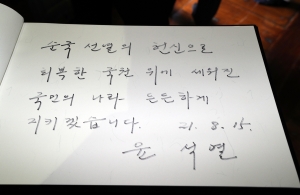 순국 선열의 헌신으로
회복한 국권 위에 세워진
국민의 나라 든든하게
지키겠습니다. 21. 8. 15.
윤 석 열